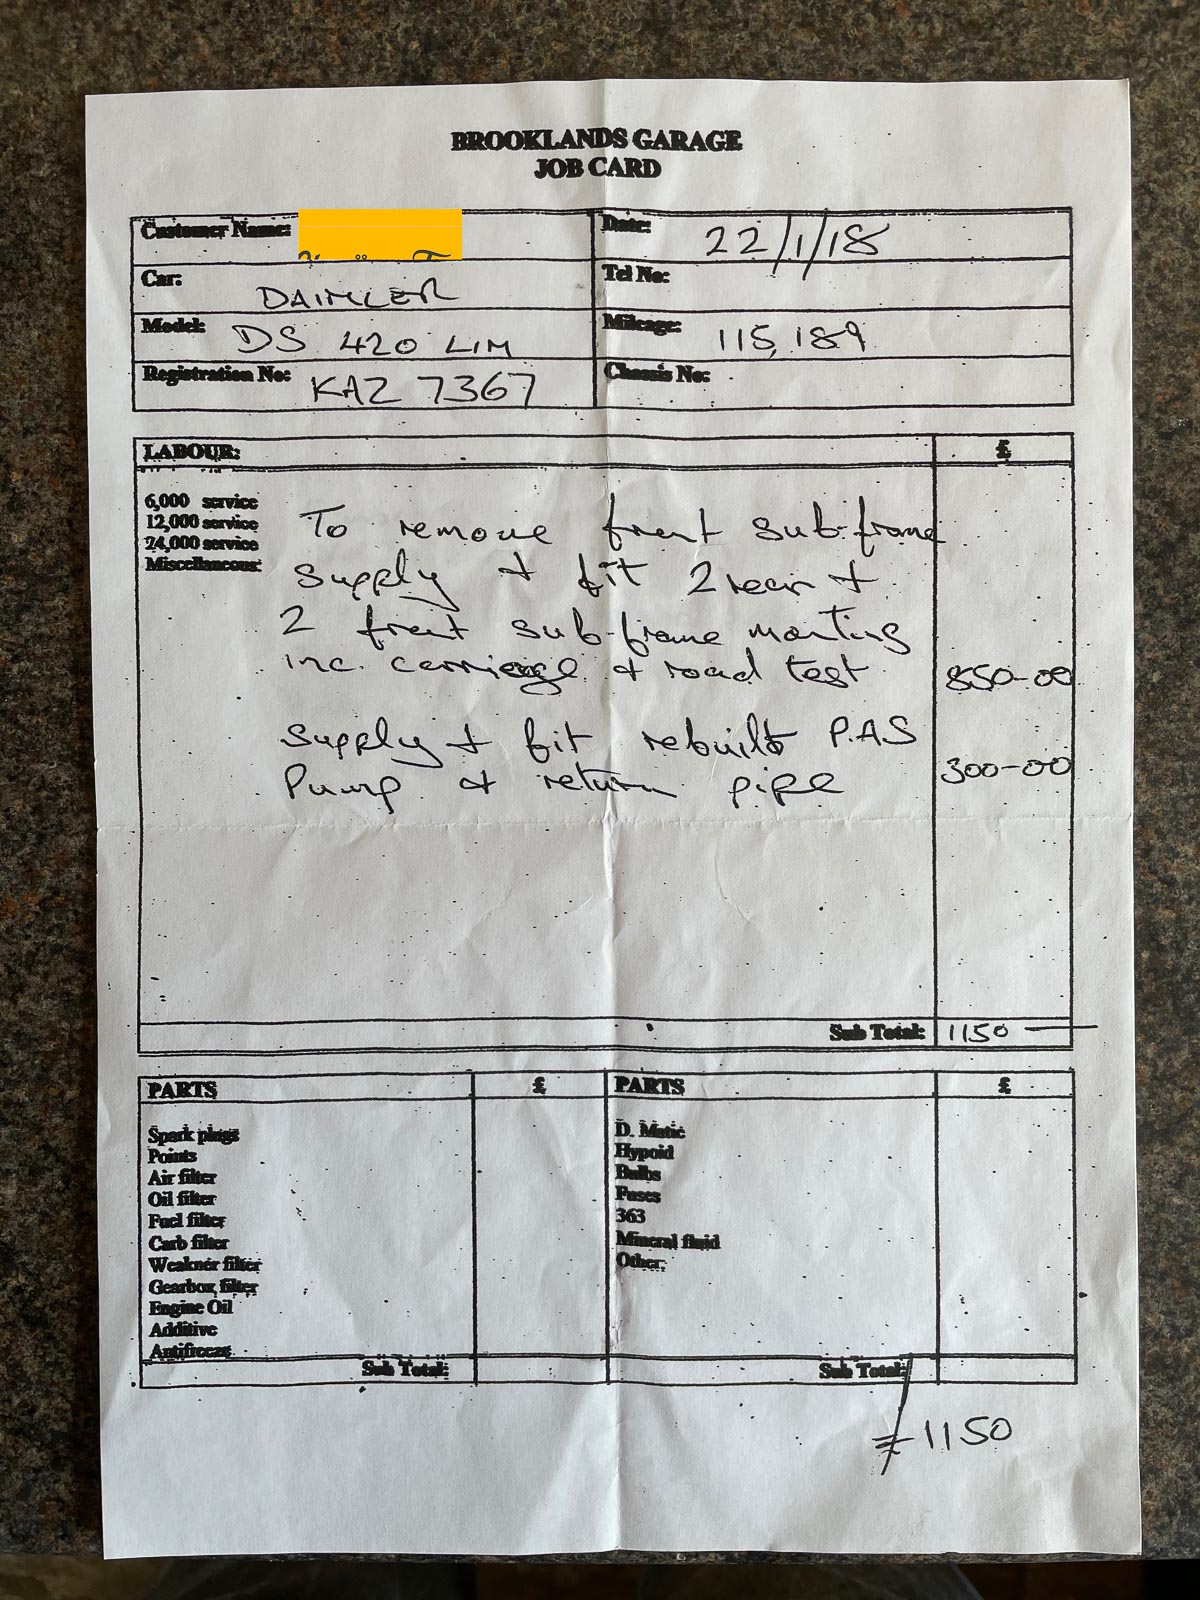 BROOKLANDS GARAGE
JOB CARD
Customer Name:
Date: 22/1/18
Car: DAIMLER
Tel No:
Model: DS 420 LIM
Mileage: 115,189
Registration No: KAZ 7367
Chassis No:
LABOUR: £
6,000 service
12,000 service
24,000 service
Miscellaneous:
To remove front sub-frame
supply + fit 2 rear +
2 front sub-frame monting
inc. carriage + road test 850-00
Supply + fit rebuilt P.A.S
Pump + return pipe 300-00
Sub Total: 1150 —
PARTS £
Spark plugs
Points
Air filter
Oil filter
Fuel filter
Carb filter
Weakner filter
Gearbox filter
Engine Oil
Additive
Antifreeze
Sub Total:
PARTS £
D. Matic
Hypoid
Bulbs
Fuses
363
Mineral fluid
Other:
Sub Total:
£1150